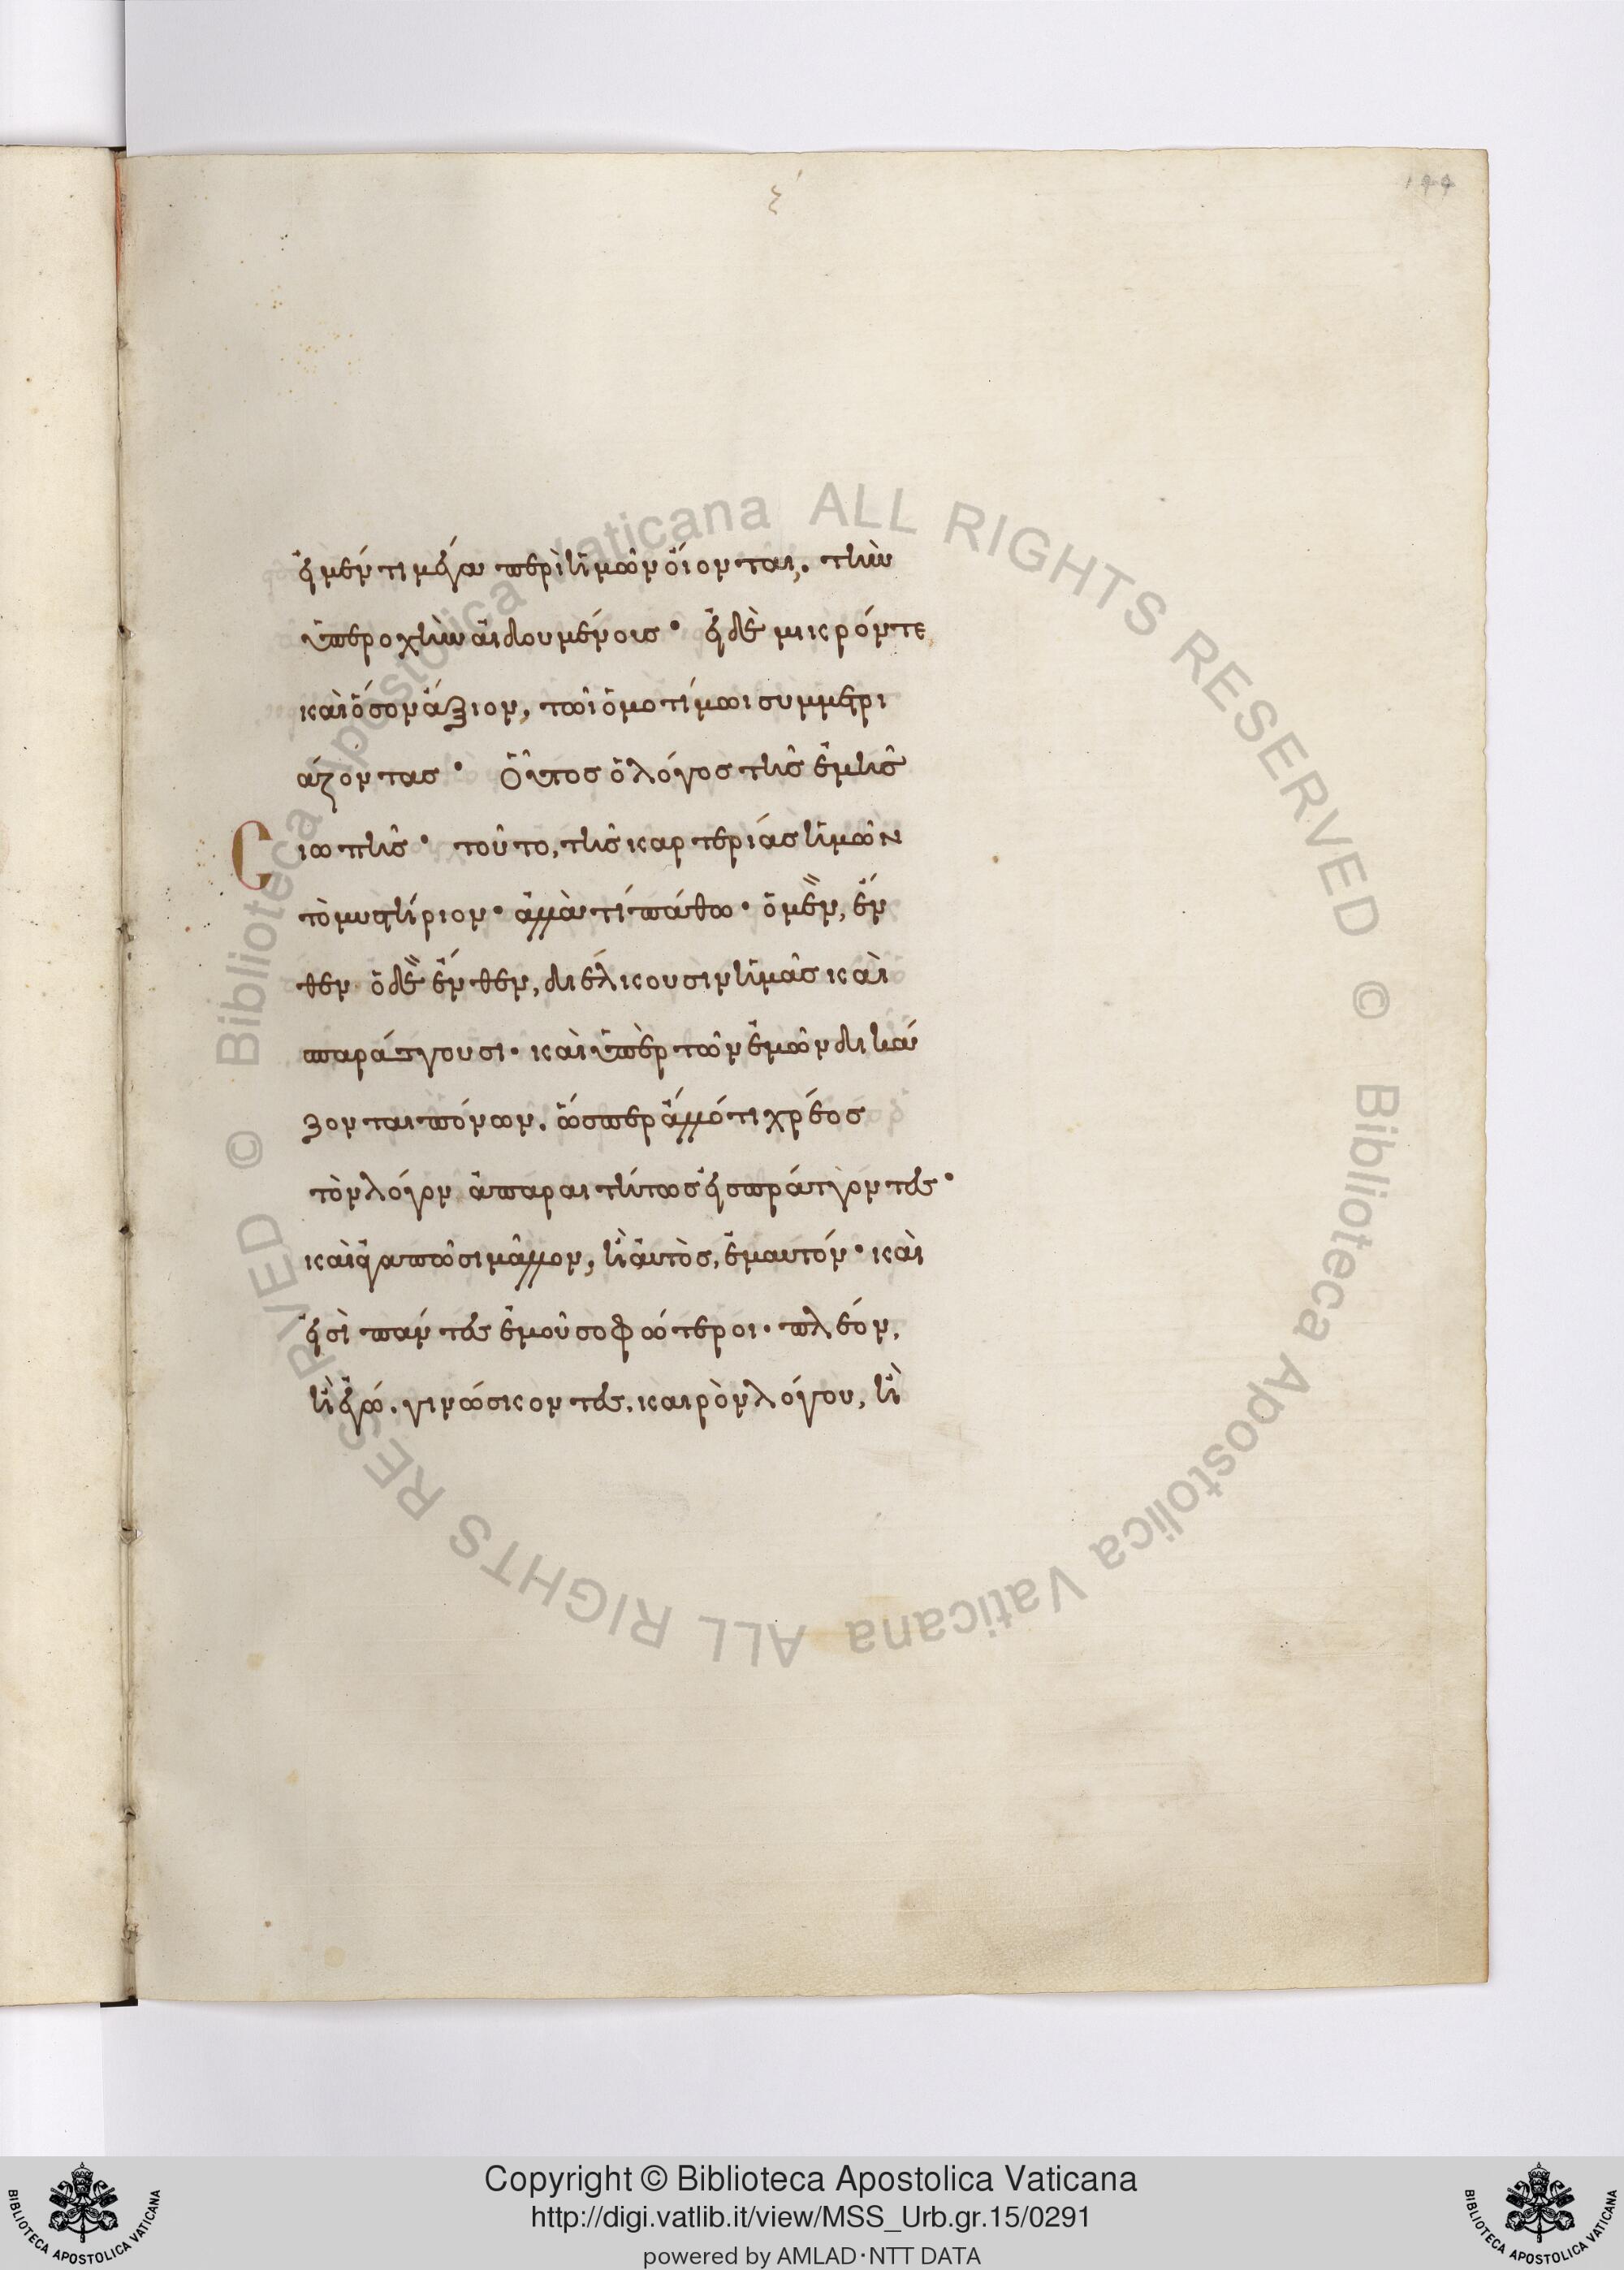 ξ΄
199
εἰ μέν τι μέγα περὶ ἡμῶν οἴονται, τὴν
ὑπεροχὴν αἰδουμένοις· εἰ δὲ μικρόν τε
καὶ ὅσον ἄξιον, τῶι ὁμοτίμωι συμμετρι
άζοντας· Οὗτος ὁ λόγος τῆς ἐμῆς
σιωπῆς· τοῦτο, τῆς καρτερίας ἡμῶν
τὸ μυστήριον· ἀλλὰ τί πάθω· ὁ μὲν, ἔν
θεν ὁ δὲ ἔνθεν, διέλκουσιν ἡμᾶς καὶ
σπαράσσουσι· καὶ ὑπὲρ τῶν ἐμῶν δικά
ζονται πόνων, ὥσπερ ἄλλό τι χρέος
τὸν λόγον ἀπαραιτήτως εἰσπράττοντες·
καὶ ἀγαπῶσι μᾶλλον, ἢ αὐτὸς, ἐμαυτόν· καὶ
εἰσὶ πάντες ἐμοῦ σοφώτεροι· πλέον,
ἢ ἐγώ, γινώσκοντες, καιρὸν λόγου, ἢ
Copyright © Biblioteca Apostolica Vaticana
http://digi.vatlib.it/view/MSS_Urb.gr.15/0291
powered by AMLAD·NTT DATA
BIBLIOTECA APOSTOLICA VATICANA
BIBLIOTECA APOSTOLICA VATICANA
© Biblioteca Apostolica Vaticana ALL RIGHTS RESERVED © Biblioteca Apostolica Vaticana ALL RIGHTS RESERVED